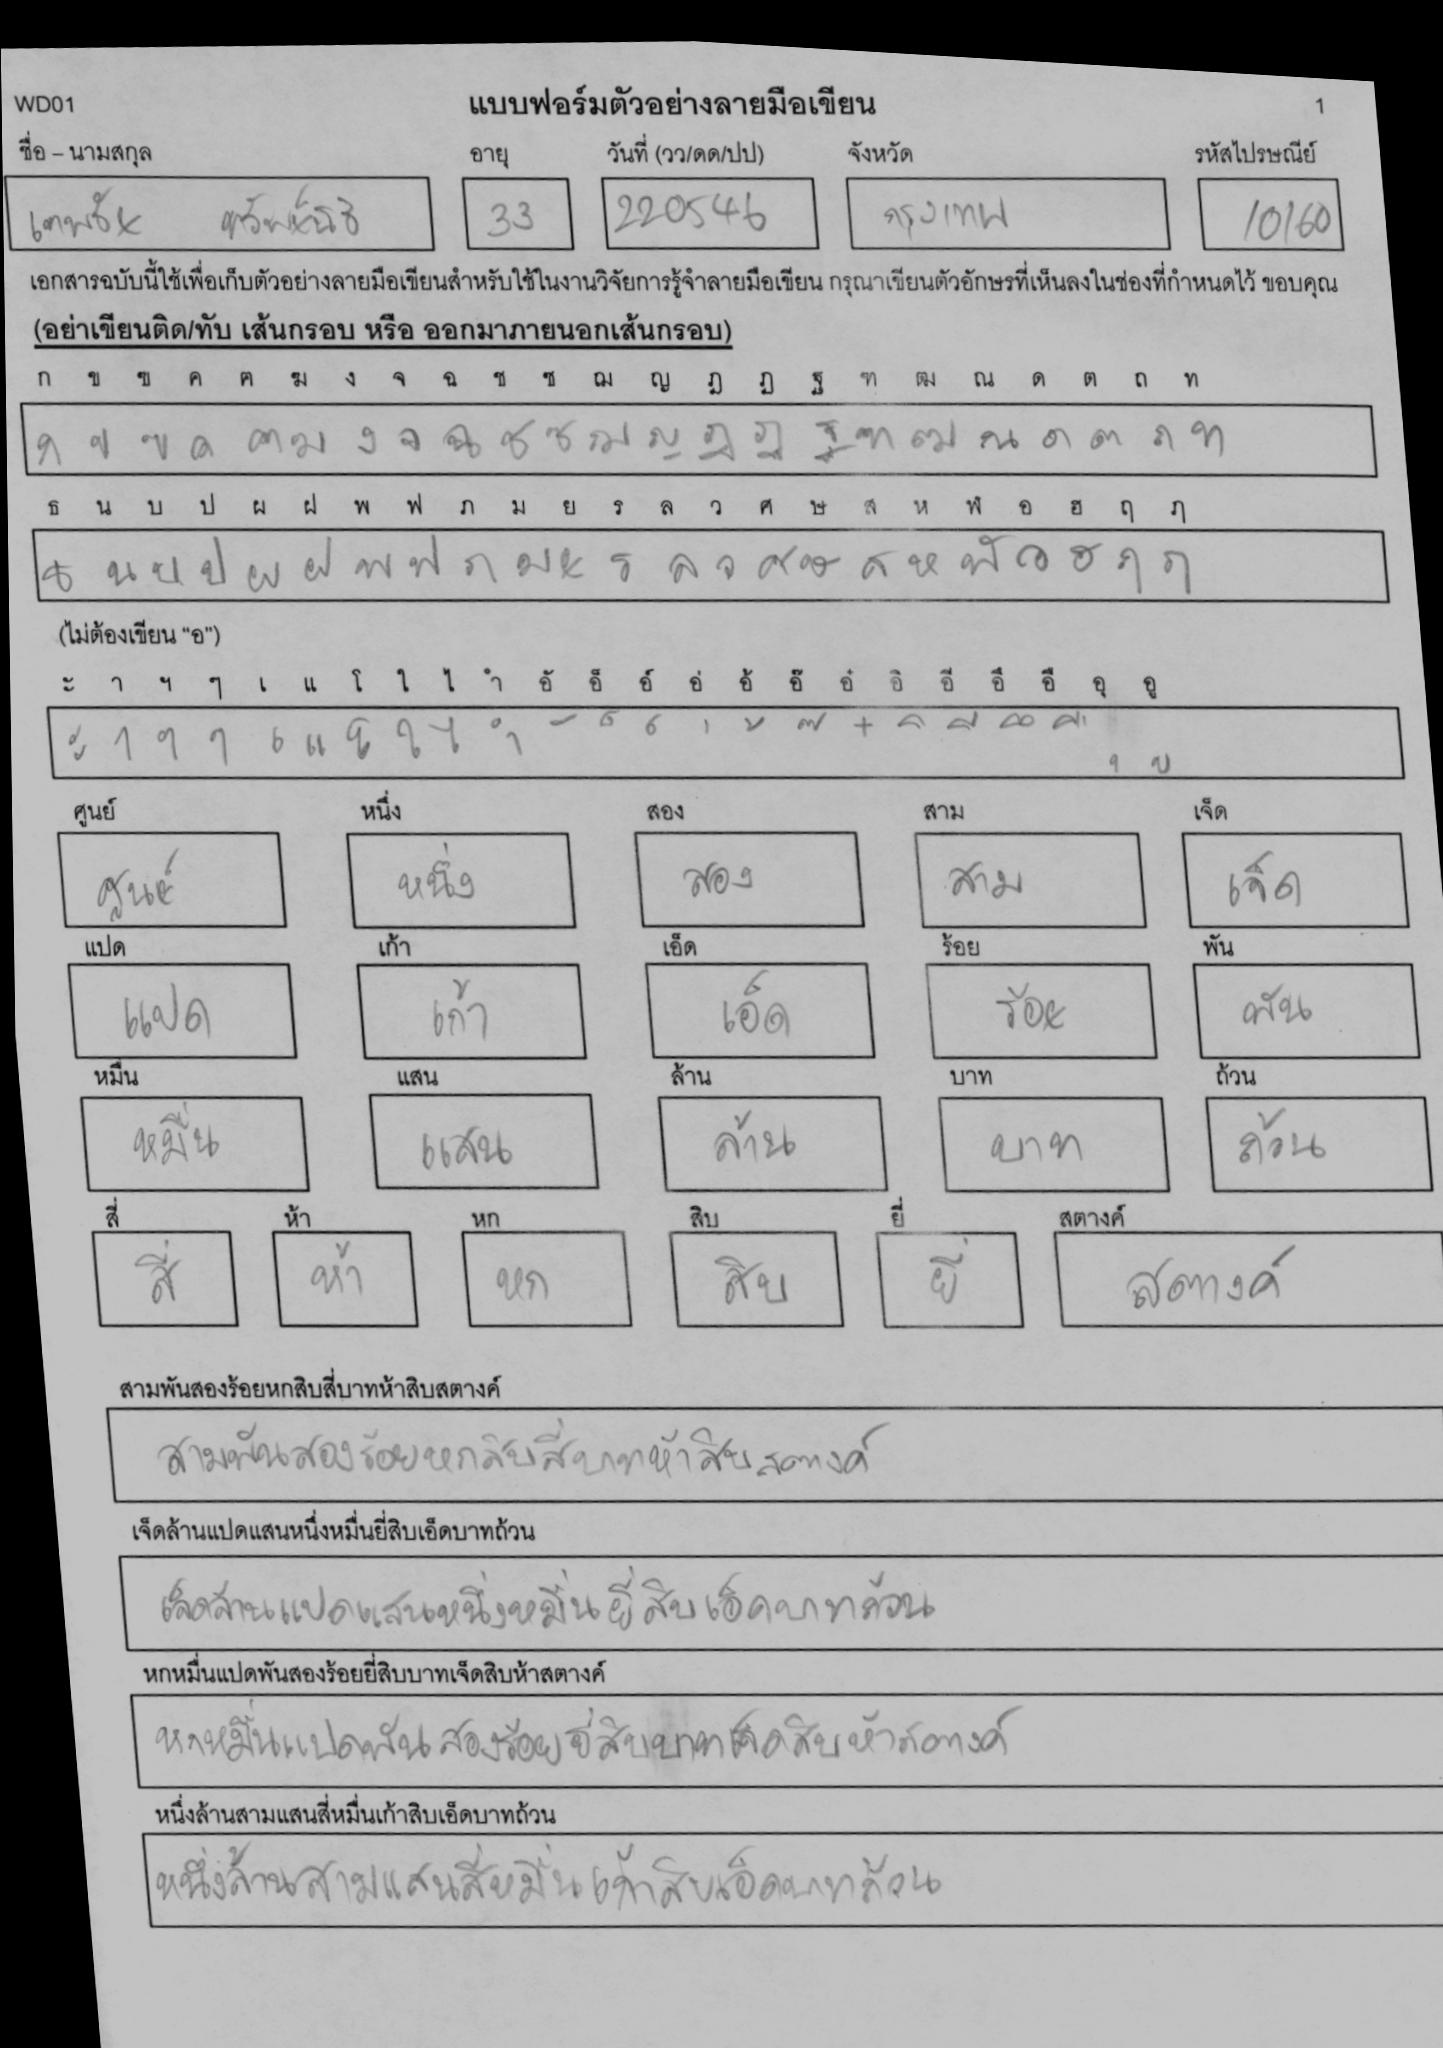 WD01 แบบฟอร์มตัวอย่างลายมือเขียน 1
ชื่อ – นามสกุล อายุ วันที่ (วว/ดด/ปป) จังหวัด รหัสไปรษณีย์
33 220546 กรุงเทพ 10160
เอกสารฉบับนี้ใช้เพื่อเก็บตัวอย่างลายมือเขียนสำหรับใช้ในงานวิจัยการรู้จำลายมือเขียน กรุณาเขียนตัวอักษรที่เห็นลงในช่องที่กำหนดไว้ ขอบคุณ
(อย่าเขียนติด/ทับ เส้นกรอบ หรือ ออกมาภายนอกเส้นกรอบ)
ก ข ฃ ค ฅ ฆ ง จ ฉ ช ซ ฌ ญ ฎ ฏ ฐ ฑ ฒ ณ ด ต ถ ท
ก ข ฃ ค ฅ ฆ ง จ ฉ ช ซ ฌ ญ ฎ ฏ ฐ ฑ ฒ ณ ด ต ถ ท
ธ น บ ป ผ ฝ พ ฟ ภ ม ย ร ล ว ศ ษ ส ห ฬ อ ฮ ฤ ฦ
ธ น บ ป ผ ฝ พ ฟ ภ ม ย ร ล ว ศ ษ ส ห ฬ อ ฮ ฤ ฦ
(ไม่ต้องเขียน “อ”)
ะ า ฯ ๆ เ แ โ ใ ไ ำ อั อ็ อ์ อ่ อ้ อ๊ อ๋ อิ อี อึ อื อุ อู
ะ า ฯ ๆ เ แ โ ใ ไ ำ ั ็ ์ ่ ้ ๊ ๋ ิ ี ึ ื ุ ู
ศูนย์ หนึ่ง สอง สาม เจ็ด
ศูนย์ หนึ่ง สอง สาม เจ็ด
แปด เก้า เอ็ด ร้อย พัน
แปด เก้า เอ็ด ร้อย พัน
หมื่น แสน ล้าน บาท ถ้วน
หมื่น แสน ล้าน บาท ถ้วน
สี่ ห้า หก สิบ ยี่ สตางค์
สี่ ห้า หก สิบ ยี่ สตางค์
สามพันสองร้อยหกสิบสี่บาทห้าสิบสตางค์
สามพันสองร้อยหกสิบสี่บาทห้าสิบสตางค์
เจ็ดล้านแปดแสนหนึ่งหมื่นยี่สิบเอ็ดบาทถ้วน
เจ็ดล้านแปดแสนหนึ่งหมื่นยี่สิบเอ็ดบาทถ้วน
หกหมื่นแปดพันสองร้อยยี่สิบบาทเจ็ดสิบห้าสตางค์
หกหมื่นแปดพันสองร้อยยี่สิบบาทเจ็ดสิบห้าสตางค์
หนึ่งล้านสามแสนสี่หมื่นเก้าสิบเอ็ดบาทถ้วน
หนึ่งล้านสามแสนสี่หมื่นเก้าสิบเอ็ดบาทถ้วน